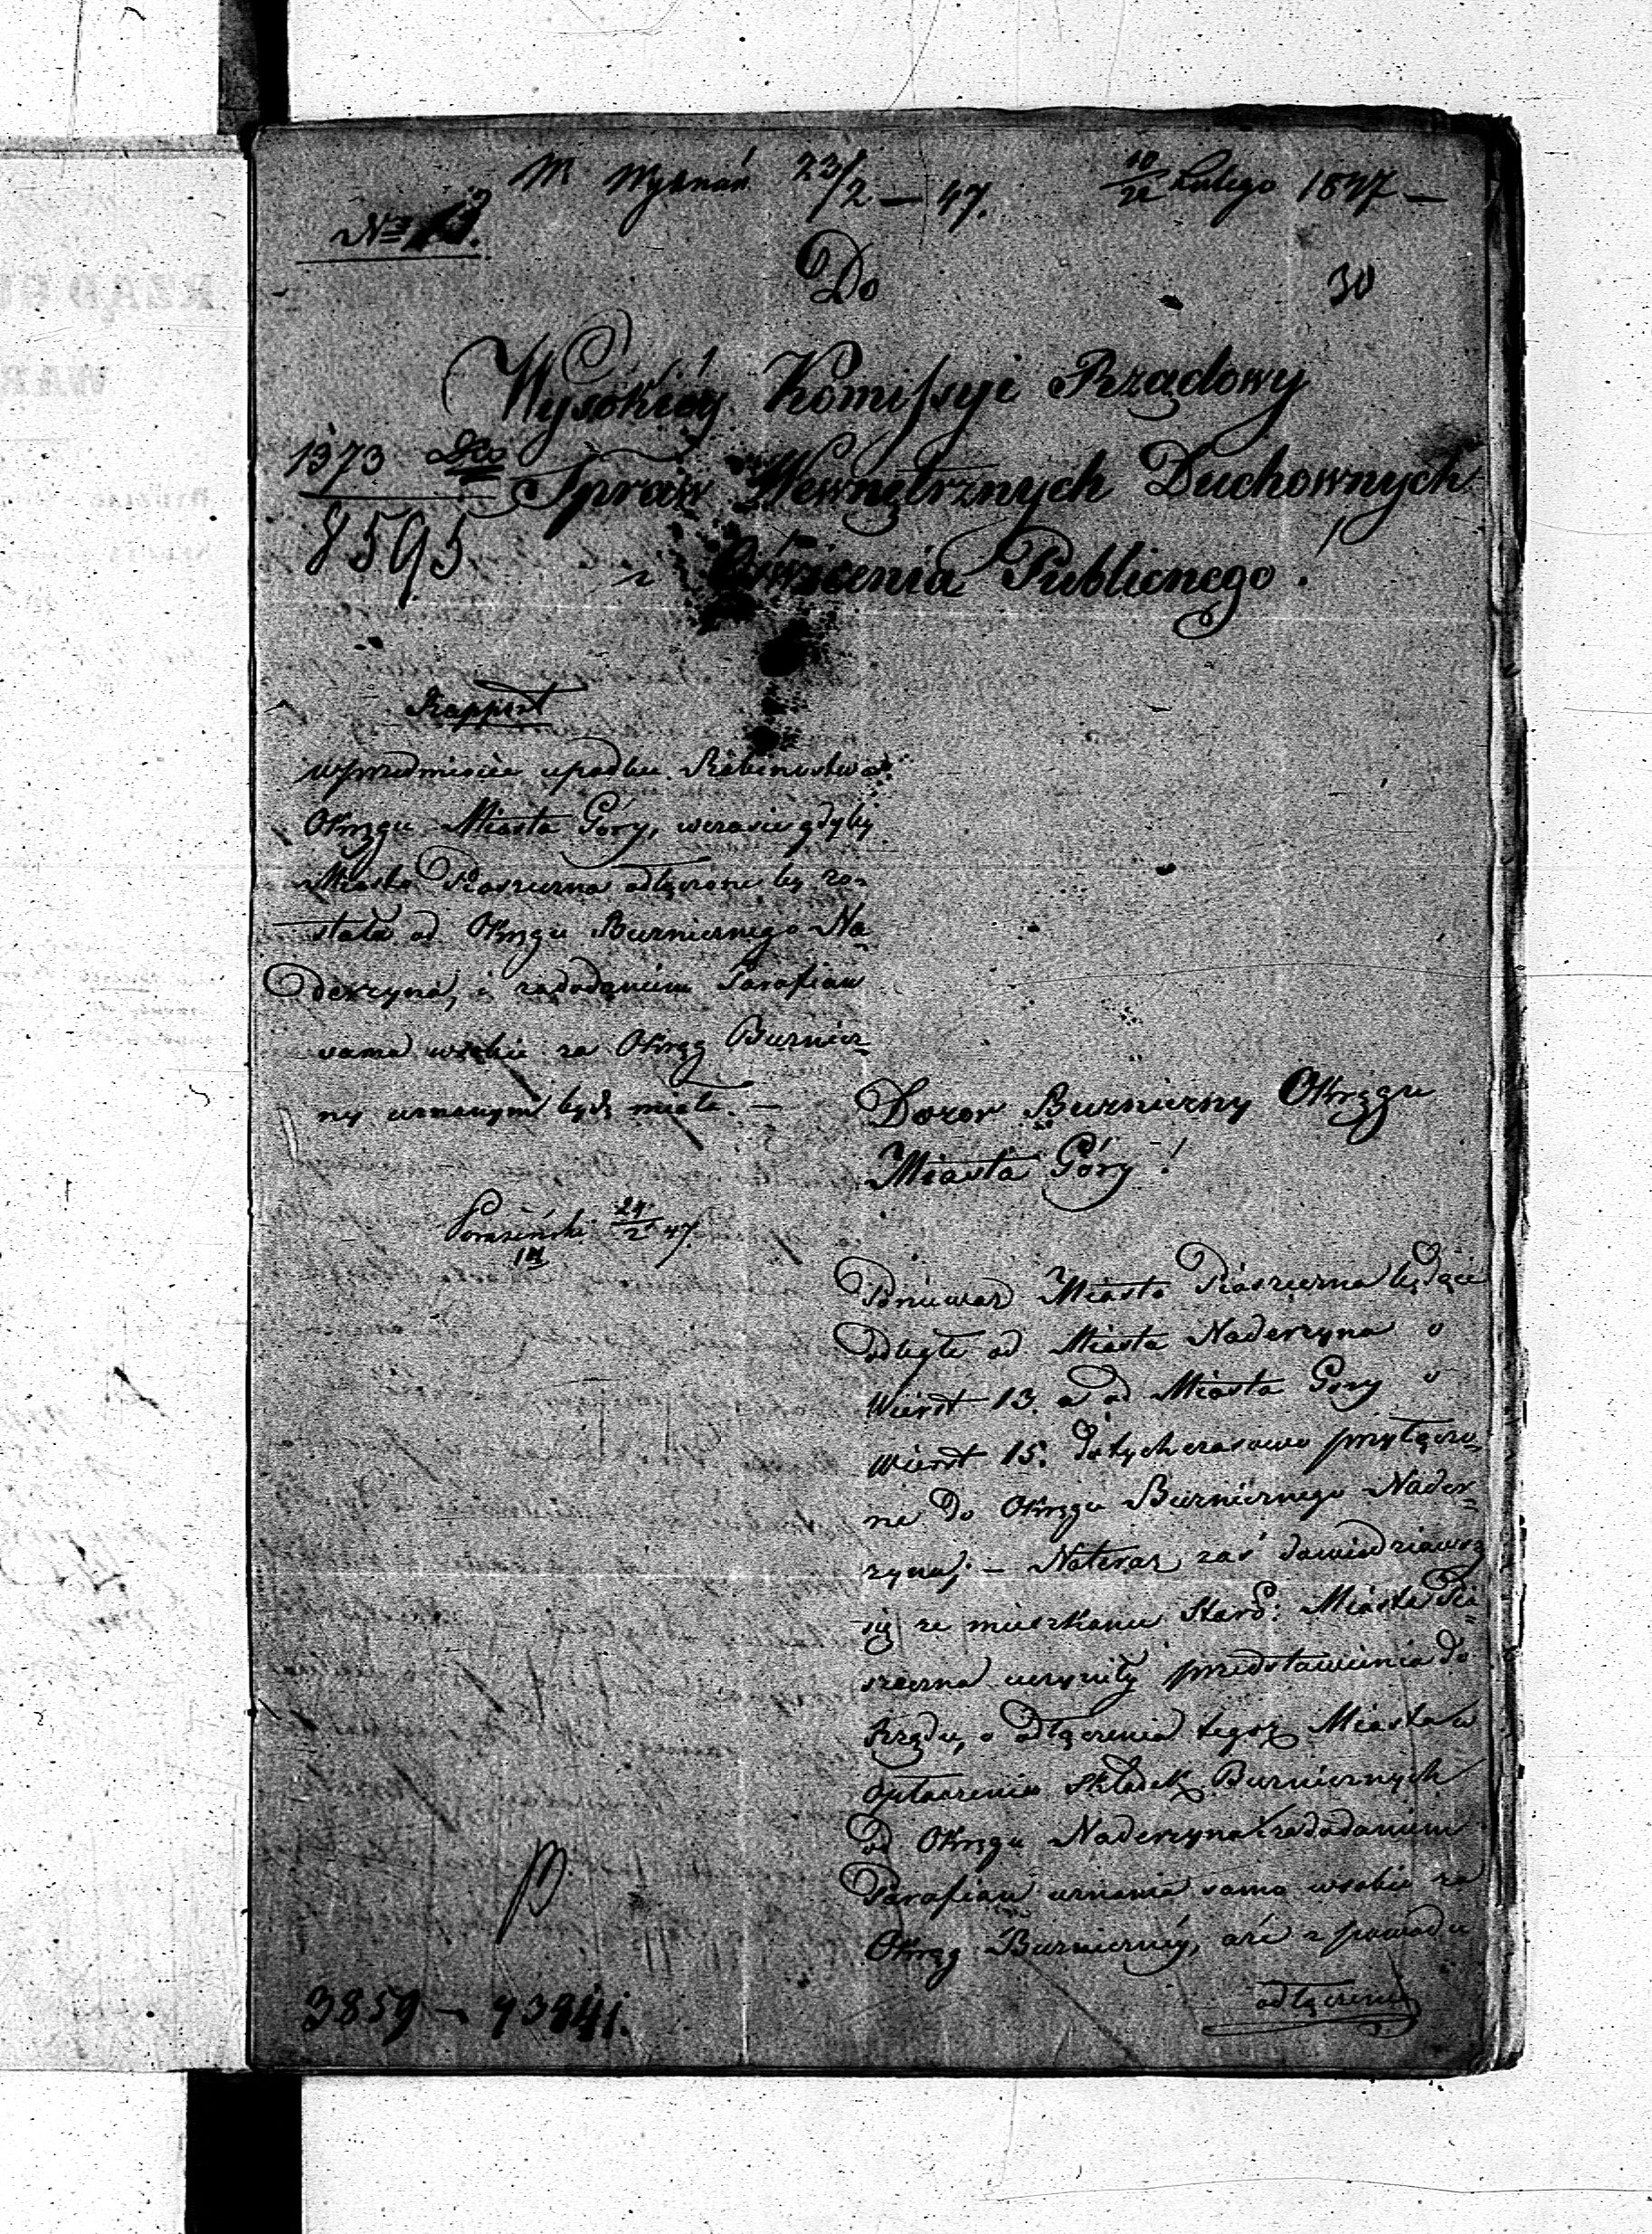 W Wyznań 23/2 – 47.
10/22 Lutego 1847 –
№
30
Do
Wysokiéy Komissyi Rządowy
Spraw Wewnętrznych Duchownych
i Oświecenia Publicznego!
1373
8595
Rapport
w przedmiocie upadku Rabinostwa
Okręgu Miasta Góry, wczasie gdyby
Miasto Piaseczna odłączone by zo-
stała od Okręgu Bużnicznego Na-
derzyna, i zadodaniem Parafiau
sama wsobie za Okręg Bużnicz-
ny uznanym być miała. –
24/2 47
Dozor Bużniczny Okręgu
Miasta Góry!
Poniewaz Miasto Piaseczna będące
odległe od Miasta Naderzyna o
Wierst 13. a od Miasta Góry o
Wierst 15. dotychczasowo przyłączo-
ne do Okręgu Bużnicznego Nader-
zyna; – Nateraz zaś dowiedziawszy
się ze mieszkance Staro: Miasta Pia-
seczna uczyniły przedstawienia do
Rządu, o odłączenia tegoż Miasta w
opłaczenia Składek Bużnicznych
od Okręgu Naderzyna i zadodaniem
Parafiau uznania sama wsobie za
Okręg Bużniczny, aże z powodu
odłączenia
3859 –